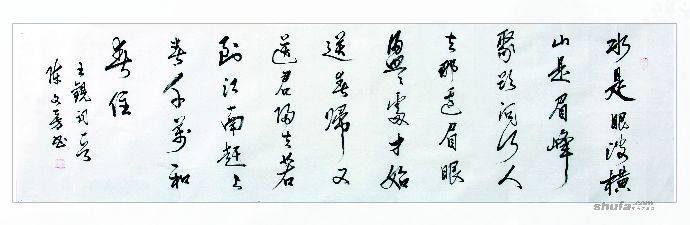 水是眼波橫
山是眉峰
聚欲问行人
去那边眉眼
盈盈處才始
送春歸又
送君归去若
到江南趕上
春千萬和
春住
王觀词一首
陈文书
shufa.com